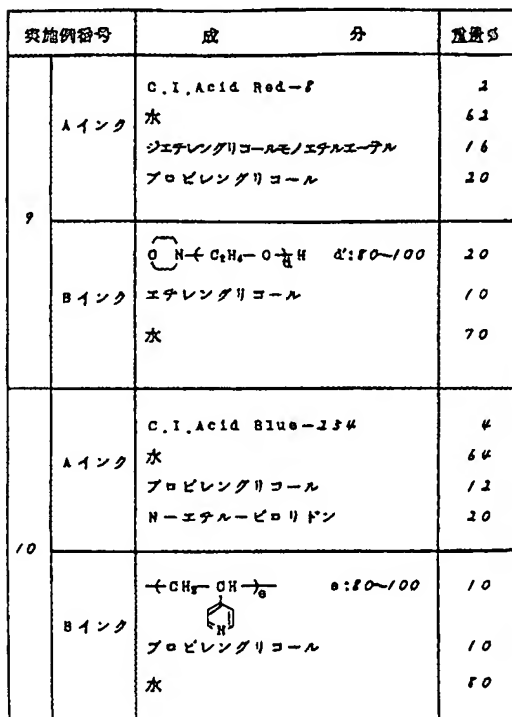 実施例番号 成分 重量%
9
Aインク
C.I.Acid Red-8 2
水 62
ジエチレングリコールモノエチルエーテル 16
プロピレングリコール 20
Bインク
O N-(C₂H₄-O)d'H d':80~100 20
エチレングリコール 10
水 70
10
Aインク
C.I.Acid Blue-234 4
水 64
プロピレングリコール 12
N-エチル-ピロリドン 20
Bインク
-(CH₂-CH)e- e:80~100 10
N
プロピレングリコール 10
水 80